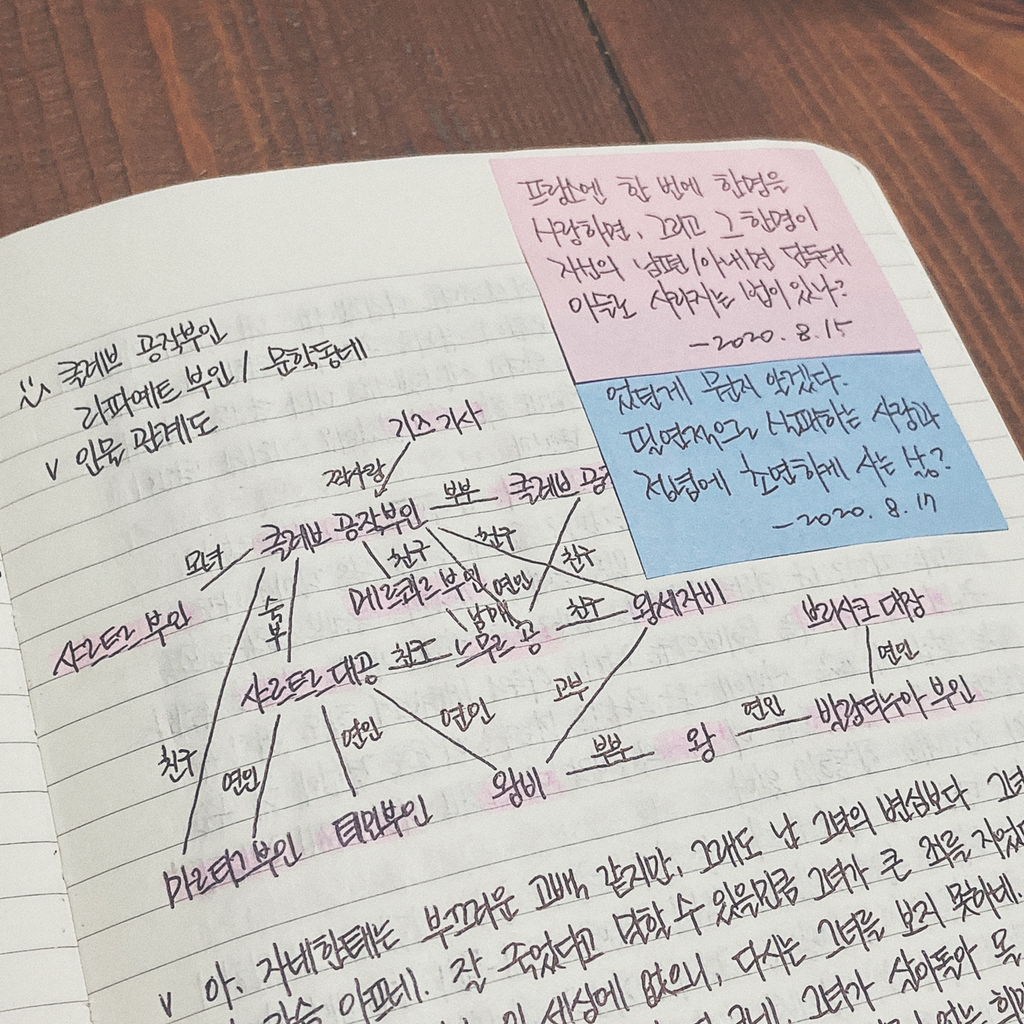 프랑스엔 한 번에 한명을
사랑하면, 그리고 그 한명이
자신의 남편/아내면 단두대
이슬로 사라지는 법이 있나?
-2020. 8. 15
었던게 묻지 않겠다.
필연적으로 실패하는 사랑과
정념에 초연하게 사는 삶?
-2020. 8. 17
클레브 공작부인
라파예트 부인 / 문학동네
v 인물 관계도
기즈 기사
짝사랑
클레브 공작부인 부부 클레브 공
모녀 친구 친구 친구
샤르트르 부인 숙부 메르쾨르 부인 연인
남매
샤르트르 대공 친구 느무르 공 친구 왕세자비 브리사크 대장
친구 연인 연인 연인 고부 연인
왕비 부부 왕 연인 발랑티누아 부인
마르티그 부인 테민부인
v 아. 자네한테는 부끄러운 고백 같지만, 그래도 난 그녀의 변심보다 그녀
가슴 아프네. 잘 죽었다고 말할 수 있을만큼 그녀가 큰 죄를 지었
세상에 없으니, 다시는 그녀를 보지 못하네.
그녀가 살아돌아